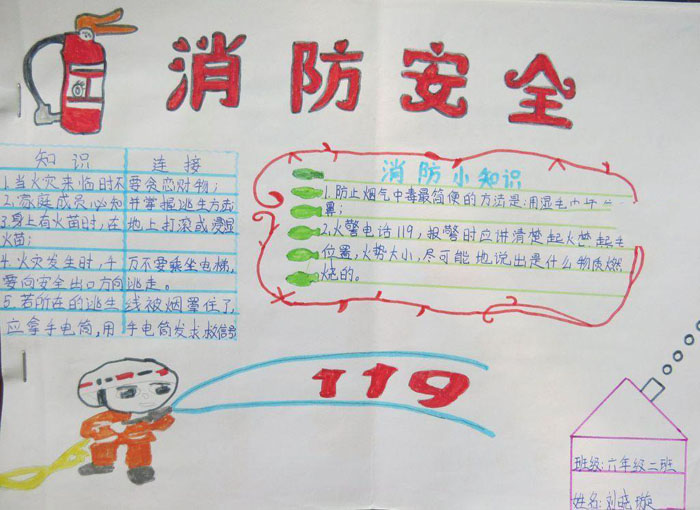 消防安全
知识连接
1.当火灾来临时不要贪恋财物;
2.家庭成员必知并掌握逃生方法
3.身上有火苗时,在地上打滚或浸湿
火苗;
4.火灾发生时,千万不要乘坐电梯,
要向安全出口方向逃走。
5.若所在的逃生线被烟罩住了,
应拿手电筒,用手电筒发求救信号
消防小知识
1.防止烟气中毒最简便的方法是:用湿毛巾
鼻;
2.火警电话119,报警时应讲清楚起火
位置,火势大小,尽可能地说出是什么物质燃
烧的。
119
班级:六年级二班
姓名:刘晓璇